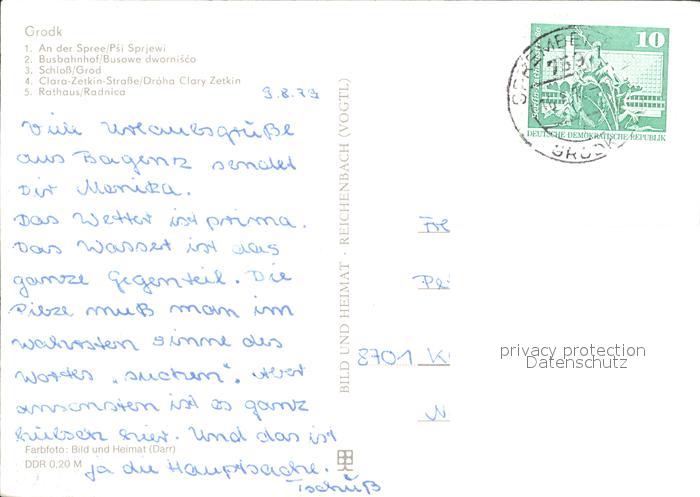 Grodk
1. An der Spree/Pśi Sprjewi
2. Busbahnhof/Busowe dwornišćo
3. Schloß/Grod
4. Clara-Zetkin-Straße/Dróha Clary Zetkin
5. Rathaus/Radnica
9.8.79
Viele Urlaubsgrüße
aus Bagenz sendet
Dir Monika.
Das Wetter ist prima.
Das Wasser ist das
ganze Gegenteil. Die
Pilze muß man im
wahrsten Sinne des
Wortes „suchen“. Aber
ansonsten ist es ganz
hübsch hier. Und das ist
ja die Hauptsache.
Tschüß
Farbfoto: Bild und Heimat (Darr)
DDR 0,20 M
BILD UND HEIMAT · REICHENBACH (VOGTL)
10
DEUTSCHE DEMOKRATISCHE REPUBLIK
SPREMBERG
GRODK
8701
privacy protection
Datenschutz